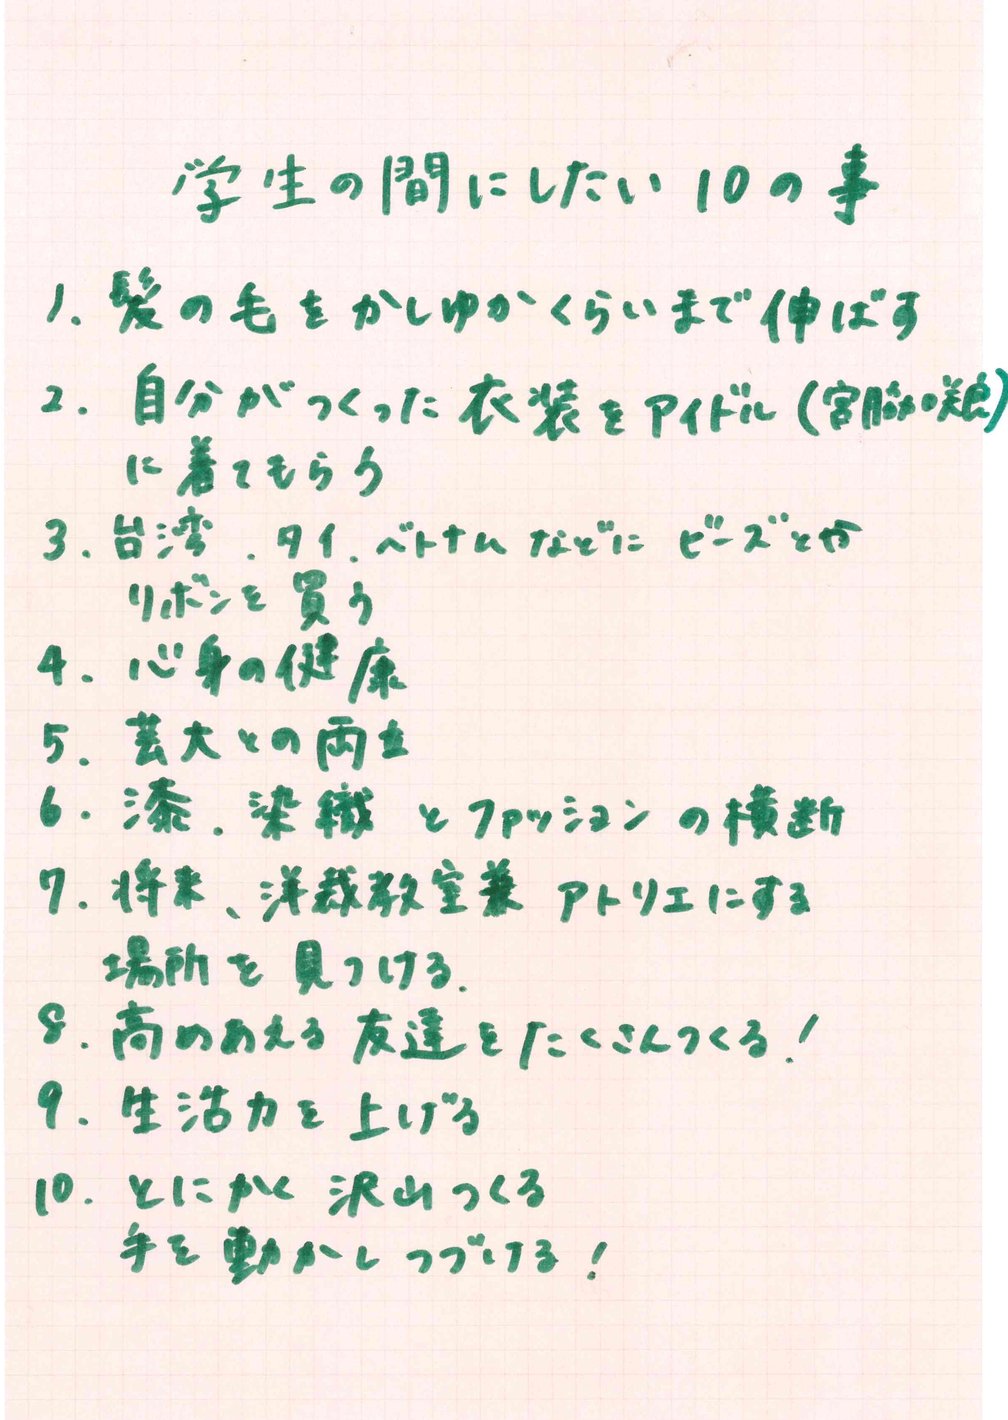 学生の間にしたい10の事
1. 髪の毛をかしゆかくらいまで伸ばす
2. 自分がつくった衣装をアイドル(宮脇咲良)
に着てもらう
3. 台湾.タイ.ベトナムなどに ビーズとか
リボンを買う
4. 心身の健康
5. 芸大との両立
6. 漆.染織とファッションの横断
7. 将来、洋裁教室兼アトリエにする
場所を見つける.
8. 高めあえる友達をたくさんつくる!
9. 生活力を上げる
10. とにかく沢山つくる
手を動かしつづける!